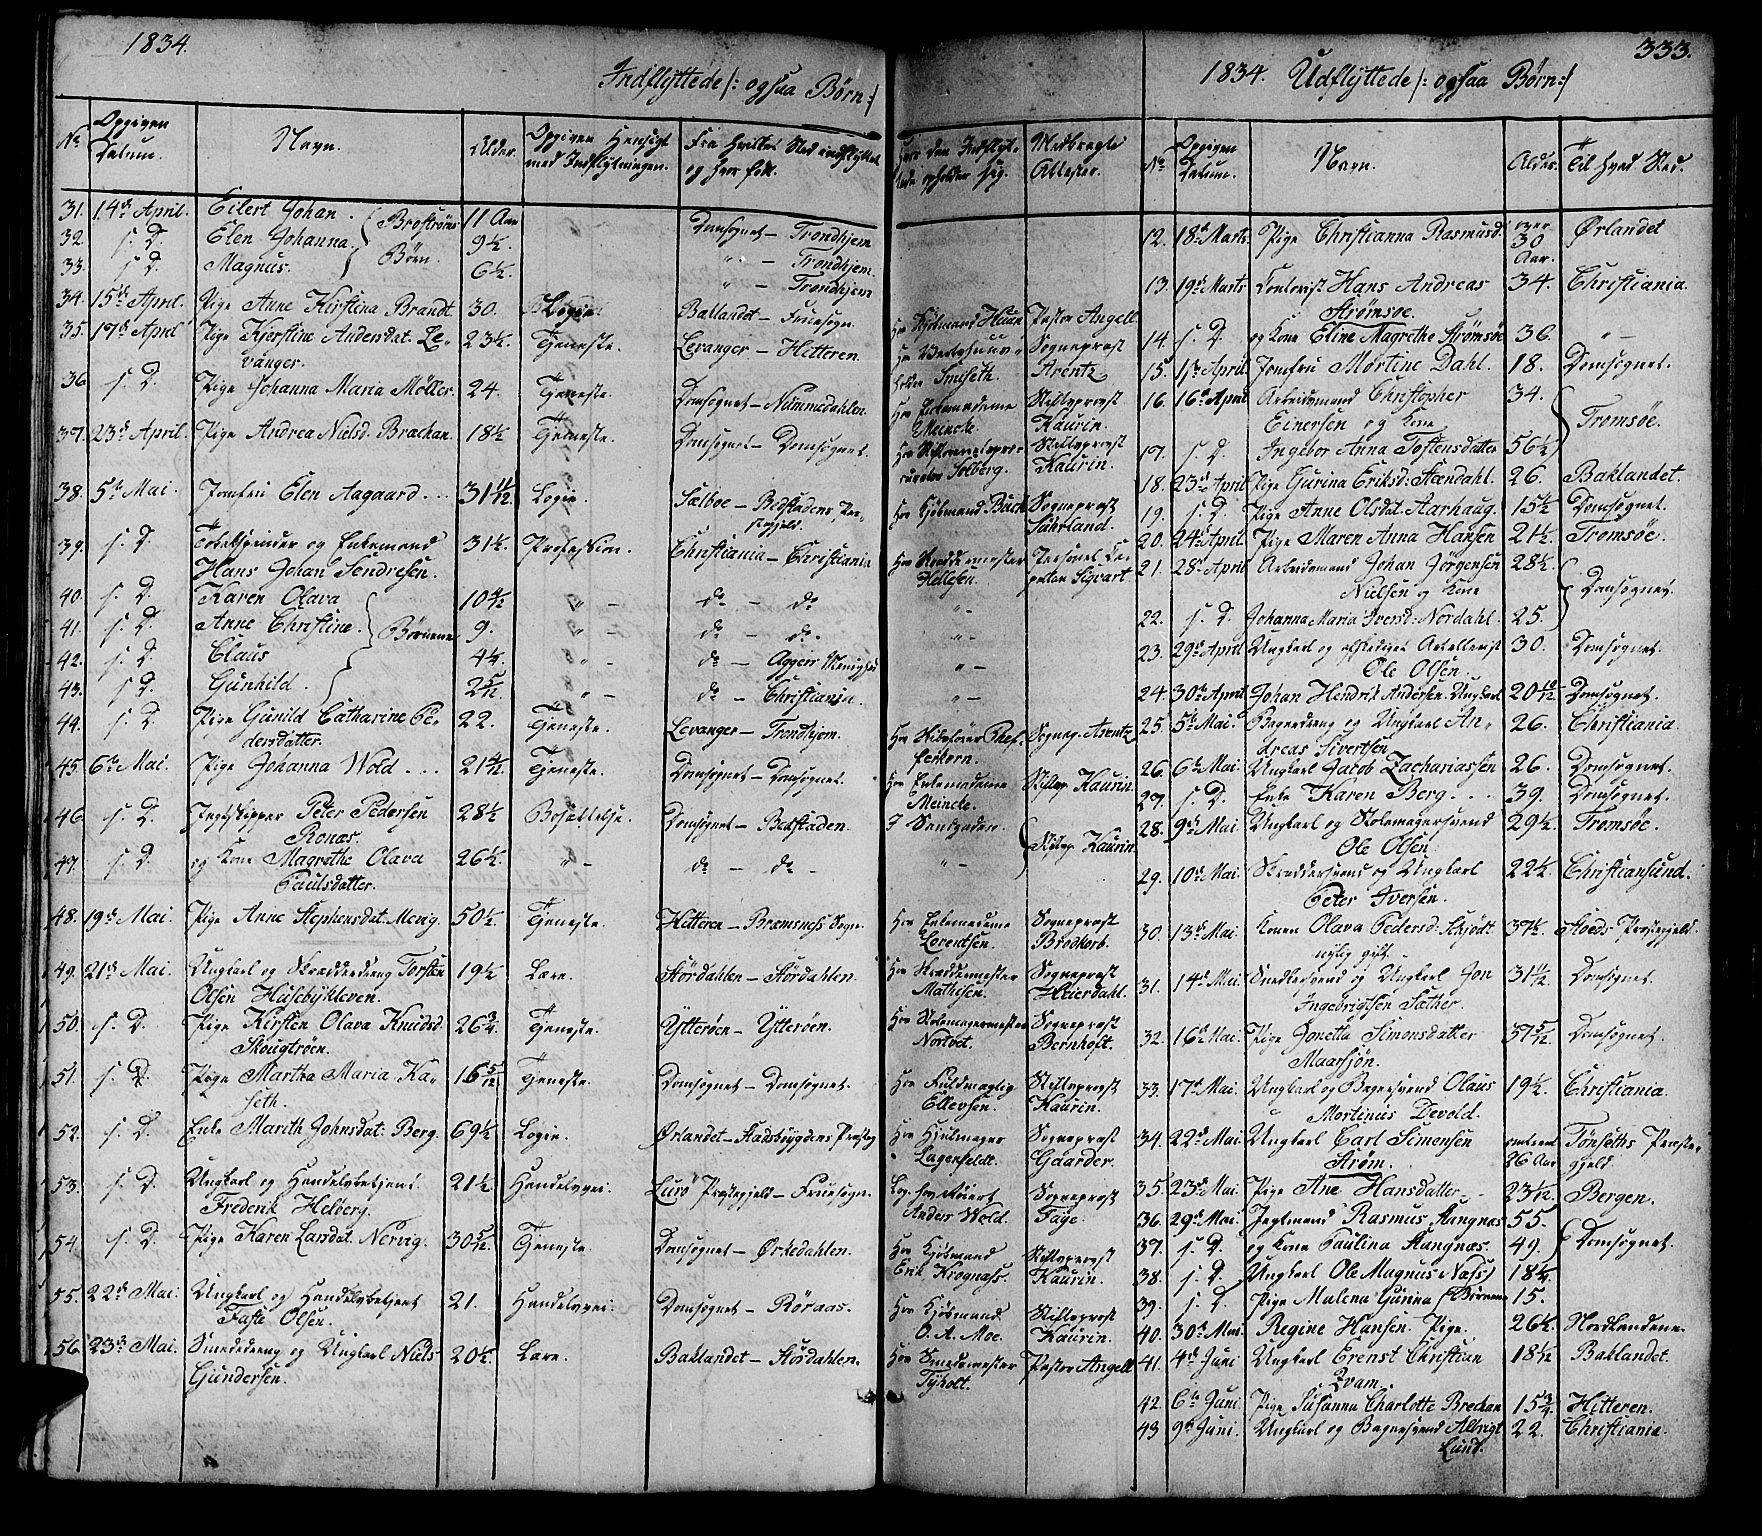 1834.
Indflyttede /: ogsaa Børn :/
No
Opgiven Datum.
Navn.
Alder.
Opgiven Hensigt med Indflytningen.
Fra hvilket Sted indflyttet og hvor født.
Hvor den Indflyttede opholder sig.
Medbragte Attester.
31. 14de April. Eilert Johan. 11 Aar Domsognet - Trondhjem
Brostrøms Børn.
32. s. D. Elen Johanna. 9½ " - Trondhjem.
33. s. D. Magnus. 6½. " - Trondhjem
34. 15de April. Pige Anne Kirstina Brandt. 30. Logie. Baklandet - Fruesogn. Hr Kjøbmand Huun Pastor Angell
35. 17de April Pige Kjerstine Andersdat. Levanger. 23½. Tjeneste. Levanger - Hitteren. Hr Vertshuusholder Smiseth. Sogneprost Arentz
36. s. D. Pige Johanna Maria Møller. 24. Tjeneste. Domsognet - Nummedahlen. Hr Enkemadame Meincke. Stiftsprost Kaurin.
37. 23de April. Pige Andrea Nielsd. Brachan. 18½ Tjeneste. Domsognet - Domsognet. Solberg. Stiftsprost Kaurin.
38. 5te Mai. Jomfru Elen Aagaard. .. 31 11/12 Logie. Sælboe - Bedstadens Præstegjeld. Hr Kjøbmand Buck Sogneprost
39. s. D. Tobakspinder og Enkemand Hans Johan Sendresen. 31½. Profession. Christiania - Christiania Hr Skreddermester Hellesen. Personel Capelan Sigvart
40. s. D. Karen Olava 10 " - do - do "-
Børnene
41. s. D. Anne Christine. 9. " - do - do. "-
42. s. D. Claus 4¼. " - do - Aggers Menighed "-
43. s. D. Gunhild. 2 5/12 " - do - Christiania. "-
44. s. D. Pige Gunild Catharine Pedersdatter. 22. Tjeneste. Levanger - Trondhjem. Sognep. Arentz
45. 6te Mai. Pige Johanna Wold ... 21 Tjeneste. Domsognet - Domsognet. Hr Enkemadame Meincke. Stiftsp Kaurin.
46. s. D. Jægtskipper Peter Pedersen Ronæs. 28½ Bosættelse. Domsognet - Bedstaden. I Sandgaden. Stiftsp Kaurin
47. s. D. og Kone Magrethe Olava Paulsdatter. 26½. " - do - do - "-
48. 19de Mai. Pige Anne Stephensdat. Mevig. 50½ Tjeneste. Hitteren - Bræmsnæss Sogn. Hr Enkemadame Lorentsen. Sogneprost Brodkorb.
49. 21de Mai. Ungkarl og Skrædderdreng Torsten Olsen Husebykleven. 19½ Lære. Størdahlen - Størdahlen. Hr Skreddermester Mathisen. Sogneprost Heierdahl.
50. s. D. Pige Kirsten Olava Knudsd. Skougtrøen. 26¾ Tjeneste. Ytterøen - Ytterøen. Hr Stolemagermester Nortvet. Sogneprost Bernhoft.
51. s. D. Pige Martha Maria Kaseth. 16 5/12 Tjeneste. Domsognet - Domsognet. Hr Fuldmægtig Ellevsen. Stiftsprost Kaurin.
52. s. D. Enke Marith Johnsdat. Berg. 69½ Logie. Ørlandet - Stadsbygdens Præsteg Hr Hjulmager Lagenfeldt. Sogneprost Gaarder.
53. s. D. Ungkarl og Handelsbetjent Frederik Helberg. 21¼. Handelsvei. Lurø Præstegjeld - Fruesogn. Anders Wold. Sogneprost Faye.
54. s. D. Pige Karen Larsdat. Nervig. 30 5/12. Tjeneste. Domsognet - Ørkedahlen. Hr Kjøbmand Erik Krognæss. Stiftsprost Kaurin.
55. 22de Mai. Ungkarl og Handelsbetjent Faste Olsen. 21. Handelsvei. Domsognet - Røraas. Hr Kjøbmand O. A. Moe. Stiftsprost Kaurin.
56. 23de Mai. Smededreng og Ungkarl Niels Gundersen. 20½. Lære. Baklandet - Størdahlen. Hr Smedemester Tyholt. Pastor Angell
333.
1834. Udflyttede /: ogsaa Børn :/
No
Opgiven Datum.
Navn.
Alder.
Til hvad Sted.
12. 18de Marts. Pige Christianna Rasmusd. over 30 Aar. Ørlandet
13. 19de Marts Hans Andreas Strømsøe. 34. Christiania.
14. s. D. og Kone Eline Magrethe Strømsøe 36. "-
15. April Jomfru Mortine Dahl. 18. Domsognet.
16. 16de April Arbeidsmand Christopher Einersen og Kone 34. Tromsøe.
17. s. D. Ingebor Anna Tostensdatter 56½
18. 23de April Pige Gurina Eriksd. Stændahl. 26. Baklandet.
19. s. D. Pige Anne Olsdat. Aarhaug. 15½ Domsognet.
20. 24de April Pige Maren Anna Hansen 21½. Tromsøe.
21. 28de April Arbeidsmand Johan Jørgensen Nielsen og Kone 28½ Domsognet.
22. s. D. Johanna Maria Iversd. Nordahl. 25.
23. 29de April Ungkarl og afskediget Artellerist Ole Olsen. 30. Domsognet.
24. 30te April Johan Hendrik Andersen. Ungkarl 20 10/12 Domsognet.
25. 5te Mai. Bagerdreng og Ungkarl Andreas Sivertsen 26. Christiania.
26. 6te Mai Ungkarl Jacob Zachariassen 26. Domsognet.
27. s. D. Enke Karen Berg ... 39. Domsognet.
28. 9de Mai. Ungkarl og Stolemagersvend Ole Olsen. 29½. Tromsøe.
29. 10de Mai. Skreddersvend og Ungkarl Peter Iversen. 22½. Christiansund.
30. 13de Mai. Konen Olava Pedersd. Schjødt. nylig gift. 37½. Stoeds Præstegjeld.
31. 14de Mai. Snedkersvend og Ungkarl Jon Ingebrigtsen Sæther. 31 Domsognet.
32. 16de Mai. Pige Jonetta Simonsdatter Maarsjøn. 37 5/12 Domsognet.
33. 17de Mai. Ungkarl og Bagersvend Olaus Mortinus Devold. 19½. Christiania.
34. 22de Mai Ungkarl Carl Simonsen Strøm. omtrent 26 Aar Tønsetths Præstegjeld
35. 23de Mai. Pige Ane Hansdatter. 23 Bergen.
36. 29de Mai. Jegtmand Rasmus Stangnæs 55. Domsognet.
37. s. D. og Kone Paulina Stangnæs. 49.
38. s. D. Ungkarl Ole Magnus Næss 18¼
39. s. D. Pige Malena Gurina Børnene 15.
40. 30te Mai. Regine Hansen. Pige. 26½. Nordlandene.
41. 4de Juni Ungkarl Erenst Christian Kvam. 18 Baklandet.
42. 6te Juni. Pige Susanna Charlotte Brechan 15¾. Hitteren.
43 9de Juni. Ungkarl og Bagersvend Albrigt Lund. 22. Christiania.